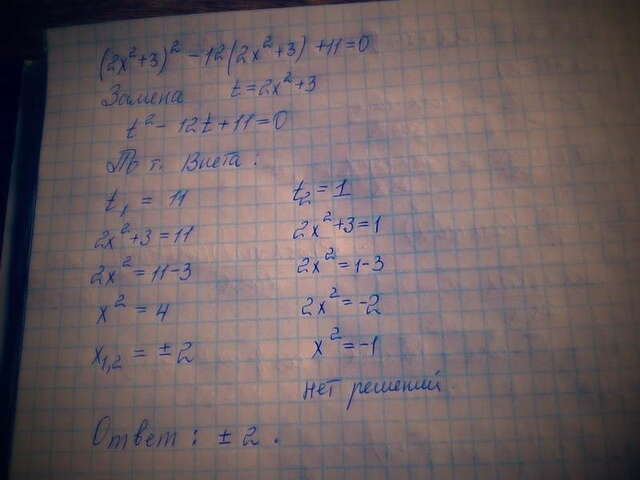 (2x²+3)² - 12(2x²+3) + 11 = 0
Замена t = 2x²+3
t² - 12t + 11 = 0
По т. Виета:
t₁ = 11 t₂ = 1
2x²+3 = 11 2x²+3 = 1
2x² = 11-3 2x² = 1-3
x² = 4 2x² = -2
x₁,₂ = ± 2 x² = -1
нет решений
Ответ: ± 2.